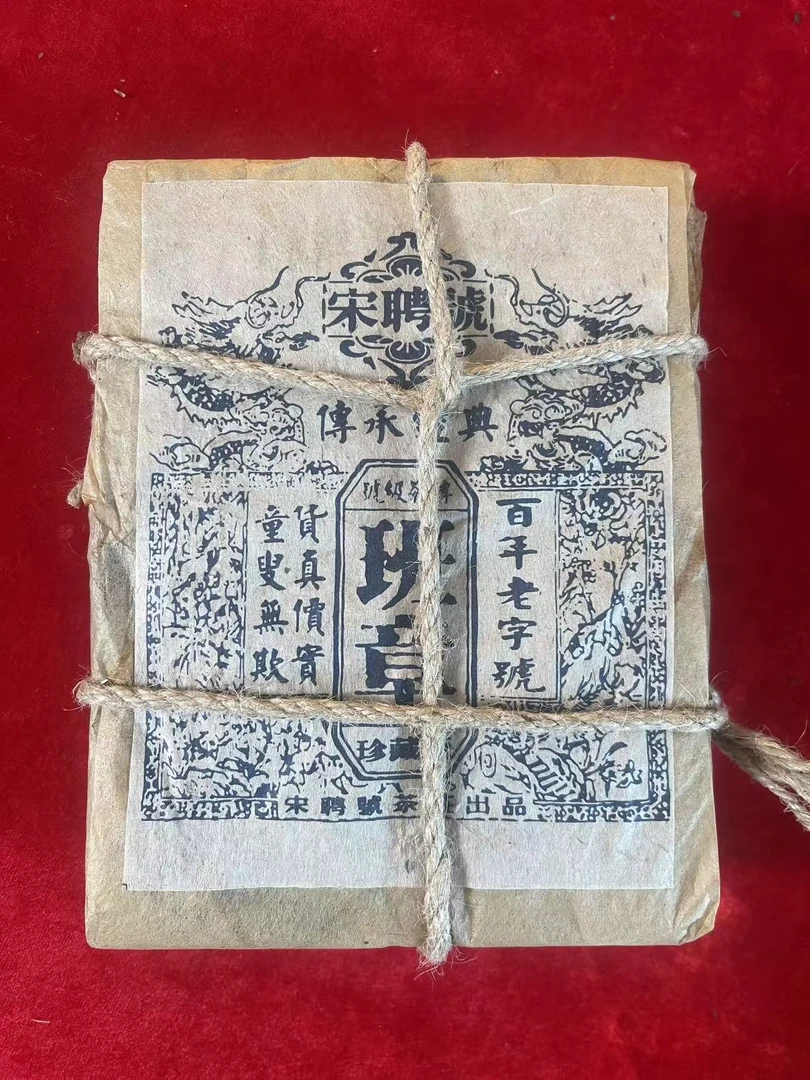 宋聘號
傳承典
號級茶
班章
珍藏
百年老字號
貨真價實
童叟無欺
宋聘號茶莊出品